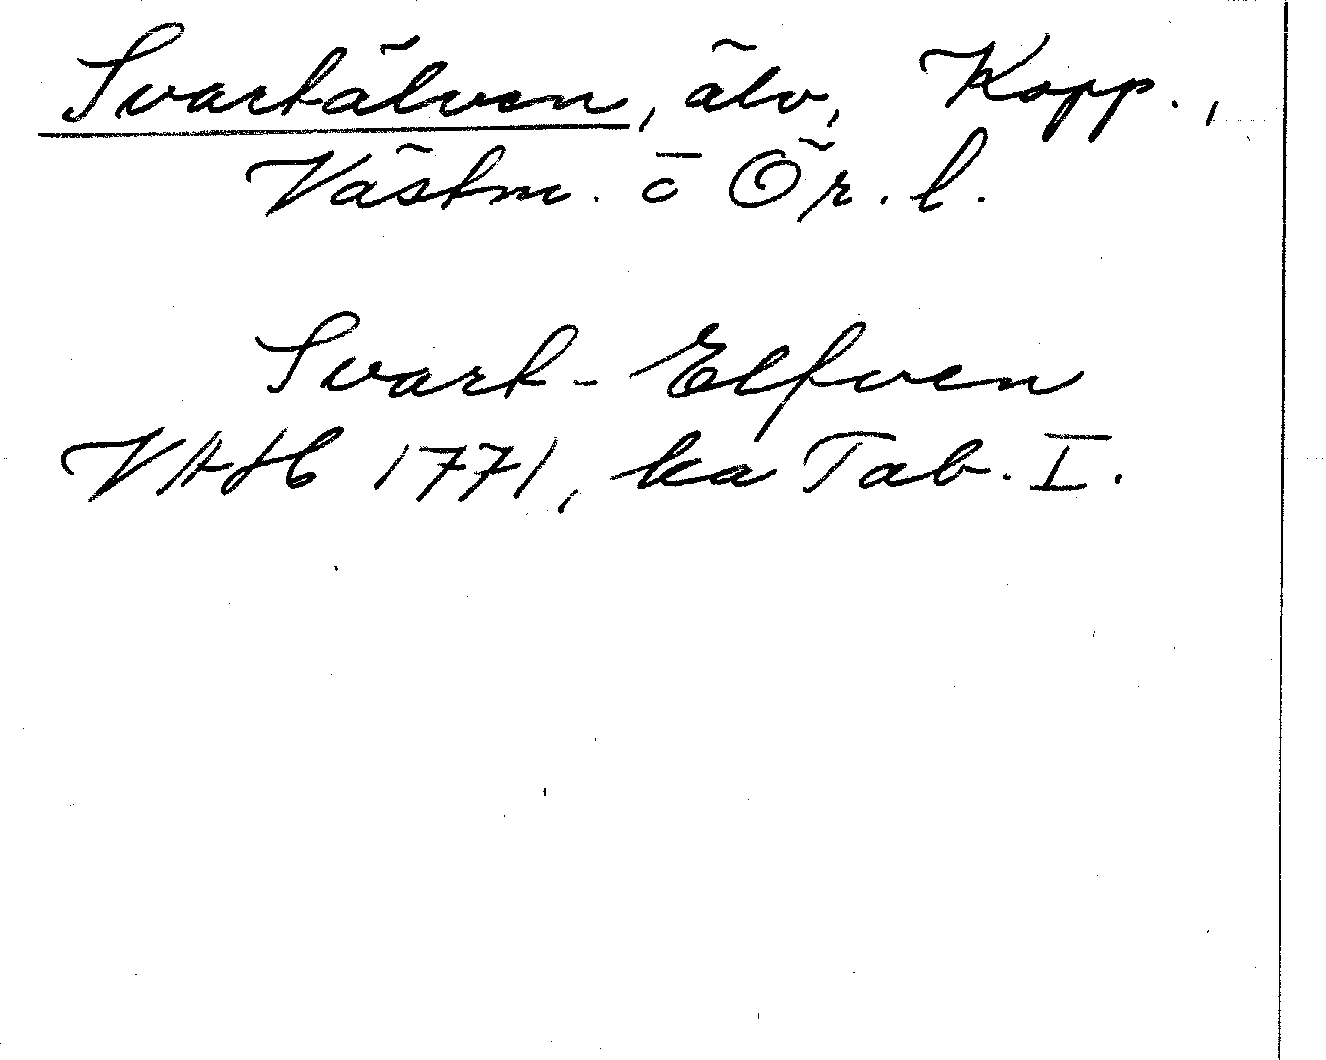 Svartälven, älv, Kopp.,
Västm. o Ör. l.
Svart-Elfven
VAH 1771, ka Tab. I.